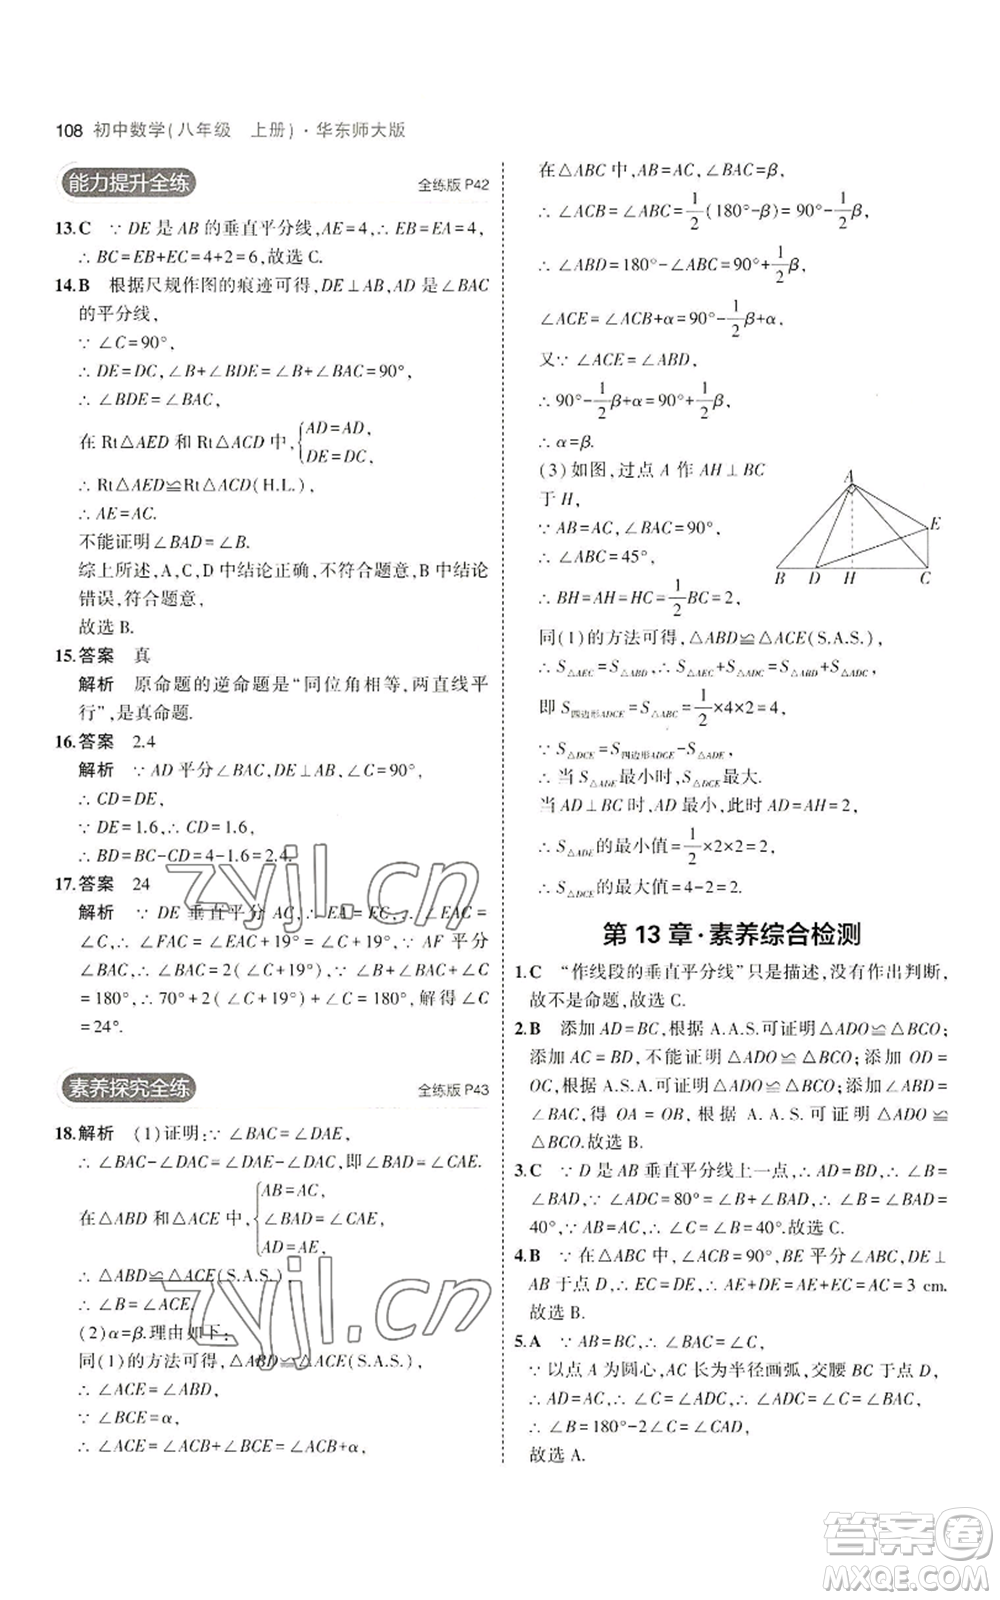 108 初中数学(八年级 上册)·华东师大版
能力提升全练 全练版 P42
13.C ∵ DE 是 AB 的垂直平分线,AE=4,∴ EB=EA=4,
∴ BC=EB+EC=4+2=6,故选 C.
14.B 根据尺规作图的痕迹可得,DE⊥AB,AD 是∠BAC
的平分线,
∵ ∠C=90°,
∴ DE=DC,∠B+∠BDE=∠B+∠BAC=90°,
∴ ∠BDE=∠BAC,
在 Rt△AED 和 Rt△ACD 中,{AD=AD,
DE=DC,
∴ Rt△AED≌Rt△ACD(H.L.),
∴ AE=AC.
不能证明∠BAD=∠B.
综上所述,A,C,D 中结论正确,不符合题意,B 中结论
错误,符合题意,
故选 B.
15.答案 真
解析 原命题的逆命题是“同位角相等,两直线平
行”,是真命题.
16.答案 2.4
解析 ∵ AD 平分∠BAC,∠C=90°,
∴ CD=DE,
∵ DE=1.6,∴ CD=1.6,
∴ BD=BC-CD=4-1.6=2.4.
17.答案 24
解析 ∵ DE 垂直平分 AC,∴ EA=EC,∴ ∠EAC=
∠C,∴ ∠FAC=∠EAC+19°=∠C+19°,∵ AF 平分
∠BAC,∴ ∠BAC=2(∠C+19°),∵ ∠B+∠BAC+∠C
=180°,∴ 70°+2(∠C+19°)+∠C=180°,解得∠C
=24°.
素养探究全练 全练版 P43
18.解析 (1)证明:∵ ∠BAC=∠DAE,
∴ ∠BAC-∠DAC=∠DAE-∠DAC,即∠BAD=∠CAE.
在△ABD 和△ACE 中,{AB=AC,
∠BAD=∠CAE,
AD=AE,
∴ △ABD≌△ACE(S.A.S.),
∴ ∠B=∠ACE.
(2)α=β.理由如下:
同(1)的方法可得,△ABD≌△ACE(S.A.S.),
∴ ∠ACE=∠ABD,
∵ ∠BCE=α,
∴ ∠ACE=∠ACB+∠BCE=∠ACB+α,
在△ABC 中,∵ AB=AC,∠BAC=β,
∴ ∠ACB=∠ABC=1/2(180°-β)=90°-1/2β,
∴ ∠ABD=180°-∠ABC=90°+1/2β,
∠ACE=∠ACB+α=90°-1/2β+α,
又∵ ∠ACE=∠ABD,
∴ 90°-1/2β+α=90°+1/2β,
∴ α=β.
(3)如图,过点 A 作 AH⊥BC
于 H,
∵ AB=AC,∠BAC=90°,
∴ ∠ABC=45°,
∴ BH=AH=HC=1/2BC=2,
A
E
B D H C
同(1)的方法可得,△ABD≌△ACE(S.A.S.),
∴ S△AEC=S△ABD,∴ S△AEC+S△ADC=S△ABD+S△ADC,
即 S四边形ADCE=S△ABC=1/2×4×2=4,
∵ S△DCE=S四边形ADCE-S△ADE,
∴ 当 S△ADE最小时,S△DCE最大.
当 AD⊥BC 时,AD 最小,此时 AD=AH=2,
∴ S△ADE的最小值=1/2×2×2=2,
∴ S△DCE的最大值=4-2=2.
第 13 章·素养综合检测
1.C “作线段的垂直平分线”只是描述,没有作出判断,
故不是命题,故选 C.
2.B 添加 AD=BC,根据 A.A.S.可证明△ADO≌△BCO;
添加 AC=BD,不能证明△ADO≌△BCO;添加 OD=
OC,根据 A.A.S.可证明△ADO≌△BCO;添加∠ABO=
∠BAO,得 OA=OB,根据 A.A.S.可证明△ADO≌
△BCO.故选 B.
3.C ∵ D 是 AB 垂直平分线上一点,∴ AD=BD,∴ ∠B=
∠BAD,∵ ∠ADC=80°=∠B+∠BAD,∴ ∠B=∠BAD=
40°,∵ AB=AC,∴ ∠C=∠B=40°.故选 C.
4.B ∵ 在△ABC 中,∠ACB=90°,BE 平分∠ABC,DE⊥
AB 于点 D,∴ EC=DE,∴ AE+DE=AE+EC=AC=3 cm.
故选 B.
5.A ∵ AB=BC,∴ ∠BAC=∠C,
∵ 以点 A 为圆心,AC 长为半径画弧,交腰 BC 于点 D,
∴ AD=AC,∴ ∠C=∠ADC,∴ ∠ADC=∠BAC,
∴ ∠B=180°-2∠C=∠CAD,
故选 A.
zyjl.cn
zyjl.cn
答案圈
MXQE.COM